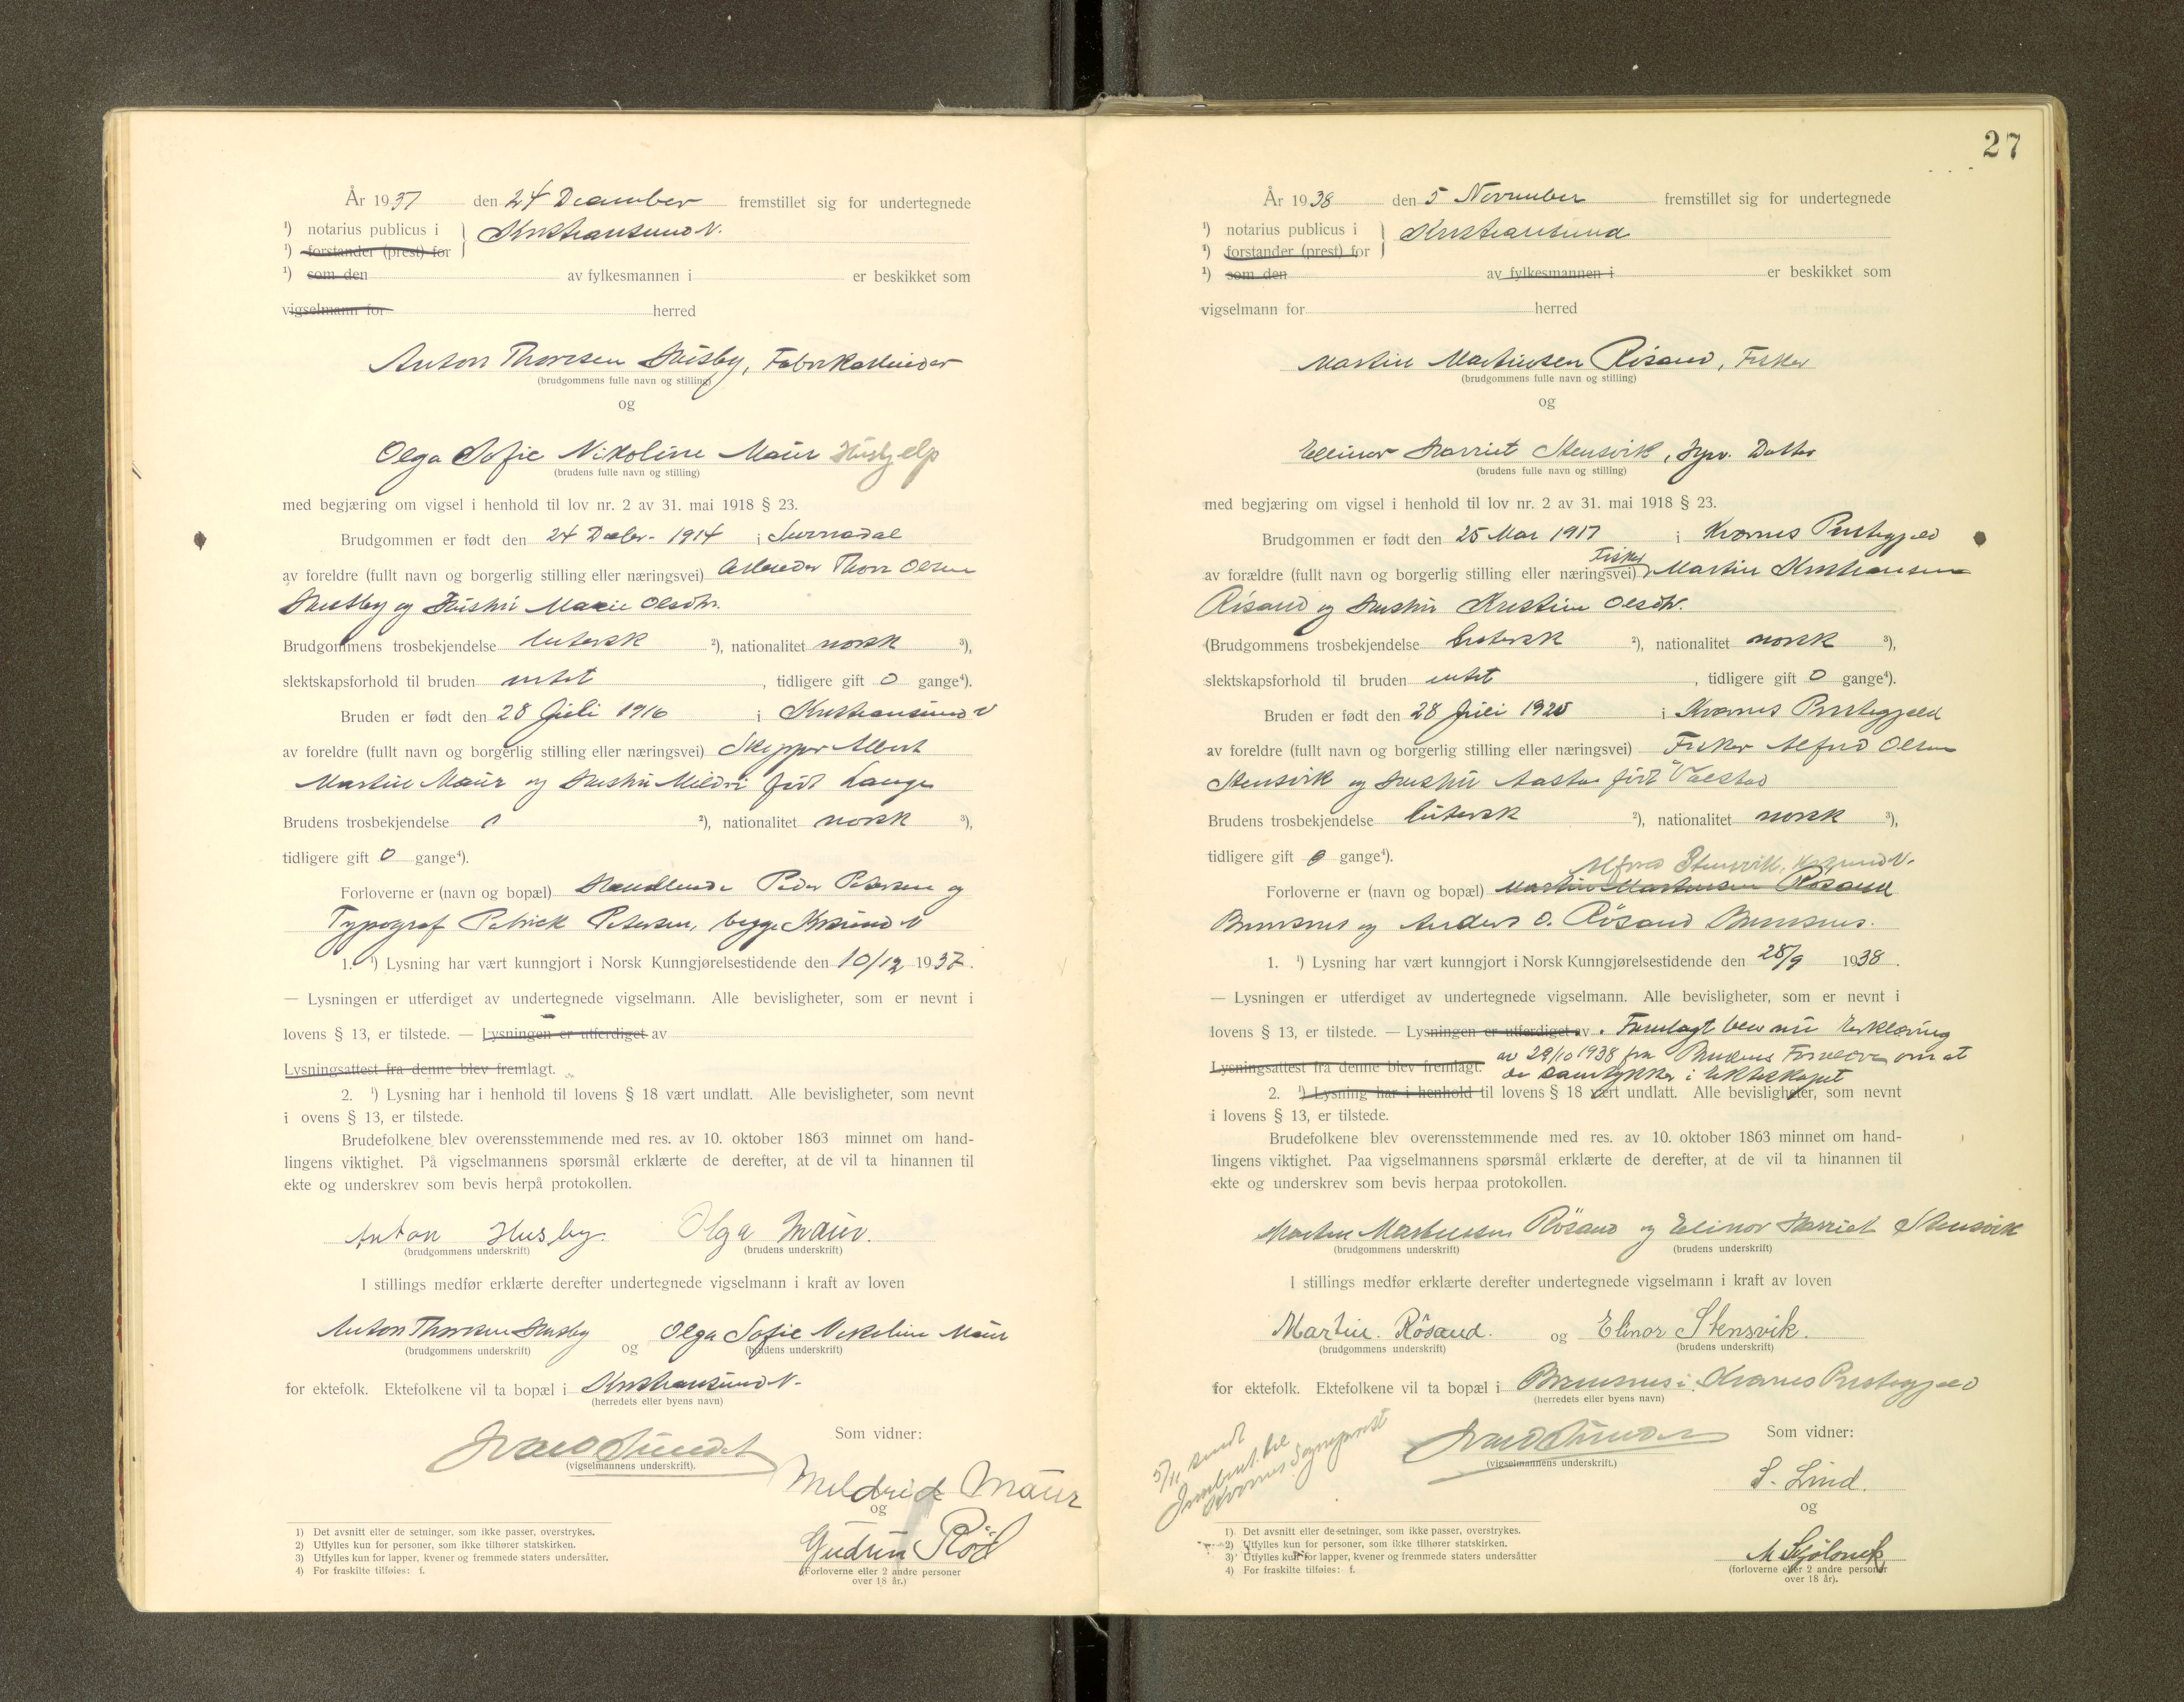 År 1937 den 24 December fremstillet sig for undertegnede
¹) notarius publicus i } Kristiansund N.
¹) forstander (prest) for
¹) som den av fylkesmannen i er beskikket som
vigselmann for herred
Anton Thoresen Husby, Fabrikarbeider
(brudgommens fulle navn og stilling)
og
Olga Sofie Nikoline Maur Hushjelp
(brudens fulle navn og stilling)
med begjæring om vigsel i henhold til lov nr. 2 av 31. mai 1918 § 23.
Brudgommen er født den 24 Decbr. 1914 i Surnadal
av foreldre (fullt navn og borgerlig stilling eller næringsvei) Arbeider Thore Olsen
Husby og Hustru Marie Olsdtr.
Brudgommens trosbekjendelse lutersk ²), nationalitet norsk ³),
slektskapsforhold til bruden intet , tidligere gift 0 gange⁴).
Bruden er født den 28 Juli 1916 i Kristiansund N
av foreldre (fullt navn og borgerlig stilling eller næringsvei) Skipper Albert
Martin Maur og Hustru Mildri født Lange
Brudens trosbekjendelse ²), nationalitet norsk ³),
tidligere gift 0 gange⁴).
Forloverne er (navn og bopæl) Handlende Peder Petersen og
Typograf Patrick Petersen, begge Krsund N
1. ¹) Lysning har vært kunngjort i Norsk Kunngjørelsestidende den 10/12 1937.
— Lysningen er utferdiget av undertegnede vigselmann. Alle bevisligheter, som er nevnt i
lovens § 13, er tilstede. — Lysningen er utferdiget av
Lysningsattest fra denne blev fremlagt.
2. ¹) Lysning har i henhold til lovens § 18 vært undlatt. Alle bevisligheter, som nevnt
i ovens § 13, er tilstede.
Brudefolkene blev overensstemmende med res. av 10. oktober 1863 minnet om hand-
lingens viktighet. På vigselmannens spørsmål erklærte de derefter, at de vil ta hinannen til
ekte og underskrev som bevis herpå protokollen.
Anton Husby. Olga Maur.
(brudgommens underskrift) (brudens underskrift)
I stillings medfør erklærte derefter undertegnede vigselmann i kraft av loven
Anton Thoresen Husby og Olga Sofie Nikoline Maur
(brudgommens underskrift) (brudens underskrift)
for ektefolk. Ektefolkene vil ta bopæl i Kristiansund N.
(herredets eller byens navn)
Som vidner:
(vigselmannens underskrift).
Mildrid Maur
og
Gudrun Röd
(Forloverne eller 2 andre personer
over 18 år.)
1) Det avsnitt eller de setninger, som ikke passer, overstrykes.
2) Utfylles kun for personer, som ikke tilhører statskirken.
3) Utfylles kun for lapper, kvener og fremmede staters undersåtter.
4) For fraskilte tilføies: f.
27
År 1938 den 5 November fremstillet sig for undertegnede
¹) notarius publicus i } Kristiansund
¹) forstander (prest) for
¹) som den av fylkesmannen i er beskikket som
vigselmann for herred
Martin Martinsen Rösand, Fisker
(brudgommens fulle navn og stilling)
og
Ellinor Harriet Stensvik, Datter
(brudens fulle navn og stilling)
med begjæring om vigsel i henhold til lov nr. 2 av 31. mai 1918 § 23.
Brudgommen er født den 25 Mai 1917 i Kvernes Prestegjeld
av forældre (fullt navn og borgerlig stilling eller næringsvei) Fisker Martin Kristiansen
Rösand og Hustru Kristine Olsdtr.
(Brudgommens trosbekjendelse lutersk ²), nationalitet norsk ³),
slektskapsforhold til bruden intet , tidligere gift 0 gange⁴).
Bruden er født den 28 Juli 1920 i Kvernes Prestegjeld
av foreldre (fullt navn og borgerlig stilling eller næringsvei) Fisker Alfred Olsen
Stensvik og Hustru Aasta født Vaestad
Brudens trosbekjendelse lutersk ²), nationalitet norsk ³),
tidligere gift 0 gange⁴).
Alfred Stensvik, Krsund N.
Forloverne er (navn og bopæl) Martin Martinsen Rösand
Bremsnes og Anders O. Rösand Bremsnes.
1. ¹) Lysning har vært kunngjort i Norsk Kunngjørelsestidende den 28/9 1938.
— Lysningen er utferdiget av undertegnede vigselmann. Alle bevisligheter, som er nevnt i
lovens § 13, er tilstede. — Lysningen er utferdiget av . Fremlagt blev nu Erklæring
Lysningsattest fra denne blev fremlagt. av 29/10 1938 fra Brudens Foreldre om at
de samtykker i Ekteskapet
2. ¹) Lysning har i henhold til lovens § 18 vært undlatt. Alle bevisligheter, som nevnt
i lovens § 13, er tilstede.
Brudefolkene blev overensstemmende med res. av 10. oktober 1863 minnet om hand-
lingens viktighet. Paa vigselmannens spørsmål erklærte de derefter, at de vil ta hinannen til
ekte og underskrev som bevis herpaa protokollen.
Martin Martinsen Rösand og Elinor Harriet Stensvik
(brudgommens underskrift) (brudens underskrift)
I stillings medfør erklærte derefter undertegnede vigselmann i kraft av loven
Martin. Rösand. og Elinor Stensvik.
(brudgommens underskrift) (brudens underskrift)
for ektefolk. Ektefolkene vil ta bopæl i Bremsnes i Kvernes Prestegjeld
(herredets eller byens navn)
5/11 sendt
til
Kvernes Sogneprest
Som vidner:
(vigselmannens underskrift.)
S. Lind.
og
(forloverne eller 2 andre personer
over 18 år).
1) Det avsnitt eller de setninger, som ikke passer, overstrykes.
2) Utfylles kun for personer, som ikke tilhører statskirken.
3) Utfylles kun for lapper, kvener og fremmede staters undersåtter
4) For fraskilte tilføies: f.